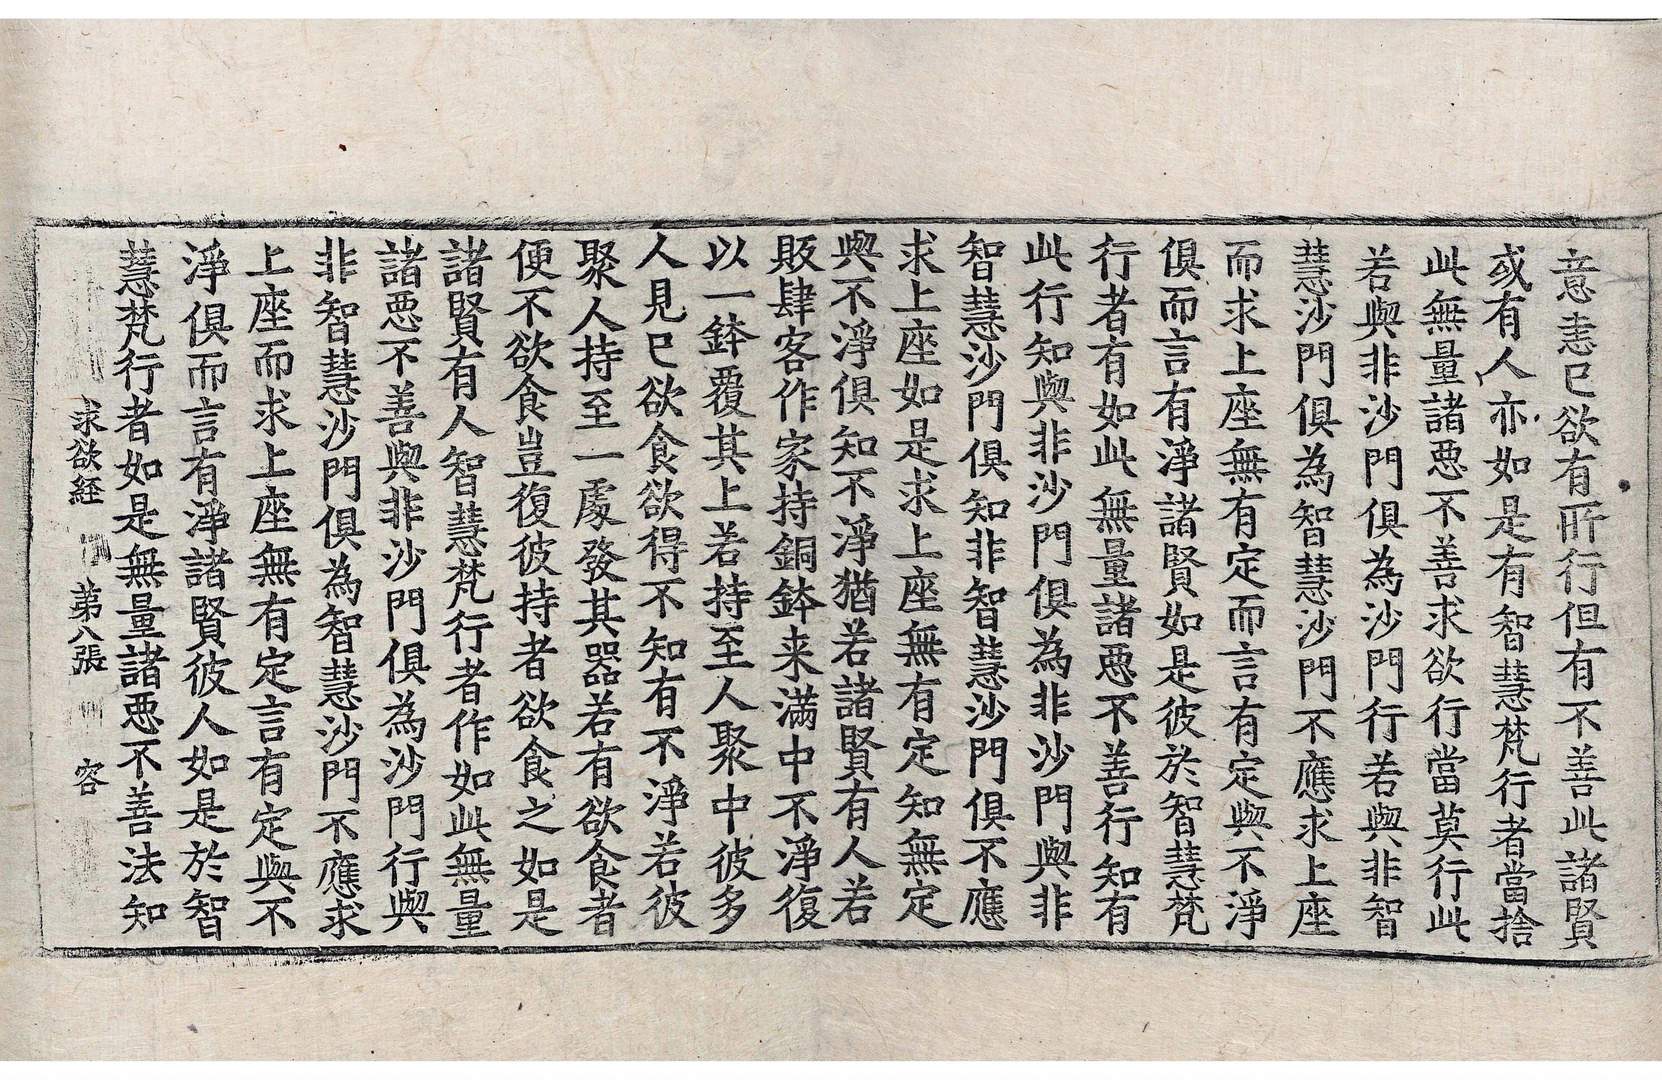 意恚已欲有所行但有不善此諸賢
或有人亦如是有智慧梵行者當捨
此無量諸惡不善求欲行當莫行此
若與非沙門俱為沙門行若與非智
慧沙門俱為智慧沙門不應求上座
而求上座無有定而言有定與不淨
俱而言有淨諸賢如是彼於智慧梵
行者有如此無量諸惡不善行知有
此行知與非沙門俱為非沙門與非
智慧沙門俱知非智慧沙門俱不應
求上座如是求上座無有定知無定
與不淨俱知不淨猶若諸賢有人若
販肆客作家持銅鉢来滿中不淨復
以一鉢覆其上若持至人聚中彼多
人見已欲食欲得不知有不淨若彼
聚人持至一處發其器若有欲食者
便不欲食豈復彼持者欲食之如是
諸賢有人智慧梵行者作如此無量
諸惡不善與非沙門俱為沙門行與
非智慧沙門俱為智慧沙門不應求
上座而求上座無有定言有定與不
淨俱而言有淨諸賢彼人如是於智
慧梵行者如是無量諸惡不善法知
求欲經 第八張 容